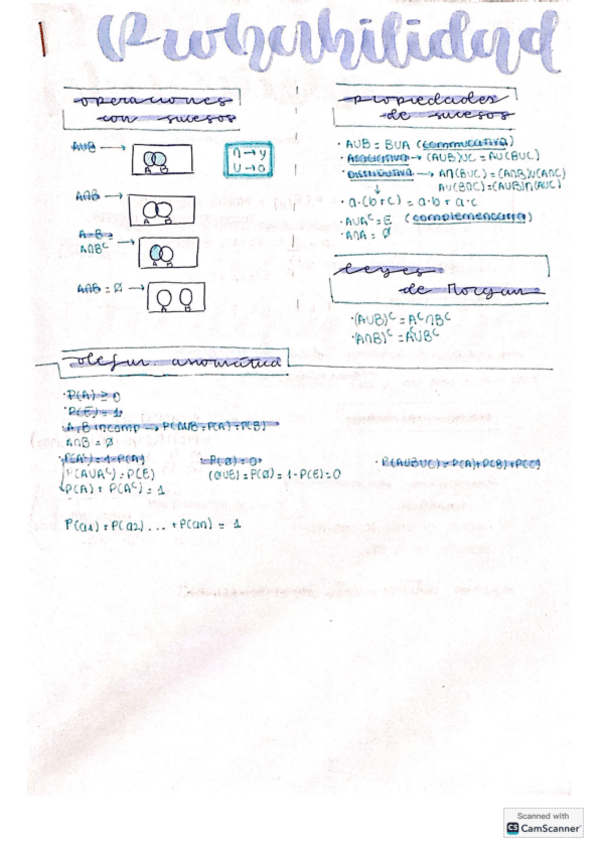 1 Probabilidad
operaciones
con sucesos
AUB →
A B
∩ → y
U → o
A∩B →
A B
A-B =
A∩Bᶜ →
A B
A∩B = Ø →
A B
propiedades
de sucesos
· AUB = BUA (conmutativa)
· Asociativa → (AUB)UC = AU(BUC)
· Distributiva → A∩(BUC) = (A∩B)U(A∩C)
↓ AU(B∩C) = (AUB)∩(AUC)
· a·(b+c) = a·b + a·c
· AUAᶜ = E (complementaria)
· A∩A = Ø
leyes
de Morgan
· (AUB)ᶜ = Aᶜ∩Bᶜ
· (A∩B)ᶜ = AᶜUBᶜ
defin. axiomática
· P(A) ≥ 0
· P(E) = 1
· A, B incomp → P(AUB = P(A) + P(B)
A∩B = Ø
· P(Aᶜ) = 1 - P(A)
P(AUAᶜ) = P(E)
P(A) + P(Aᶜ) = 1
· P(Ø) = 0
(ØUE) = P(Ø) = 1 - P(E) = 0
· P(AUBUC) = P(A) + P(B) + P(C)
P(a1) + P(a2) ... + P(an) = 1
Scanned with
CS CamScanner